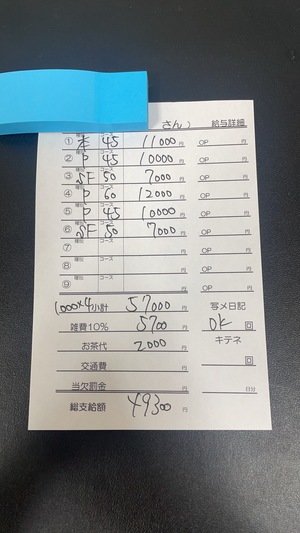 さん） 給与詳細
① 本 45 11000円 OP 円
② P 45 10000円 OP 円
③ SF 50 7000円 OP 円
④ P 60 12000円 OP 円
⑤ P 45 10000円 OP 円
⑥ SF 50 7000円 OP 円
⑦ 種別 コース 円 OP 円
⑧ 種別 コース 円 OP 円
⑨ 種別 コース 円 OP 円
1,000×4 小計 57000円 写メ日記
雑費10% 5700円 OK 回
お茶代 2000円 キテネ
交通費 円 回
当欠罰金 円 日分
総支給額 49300円